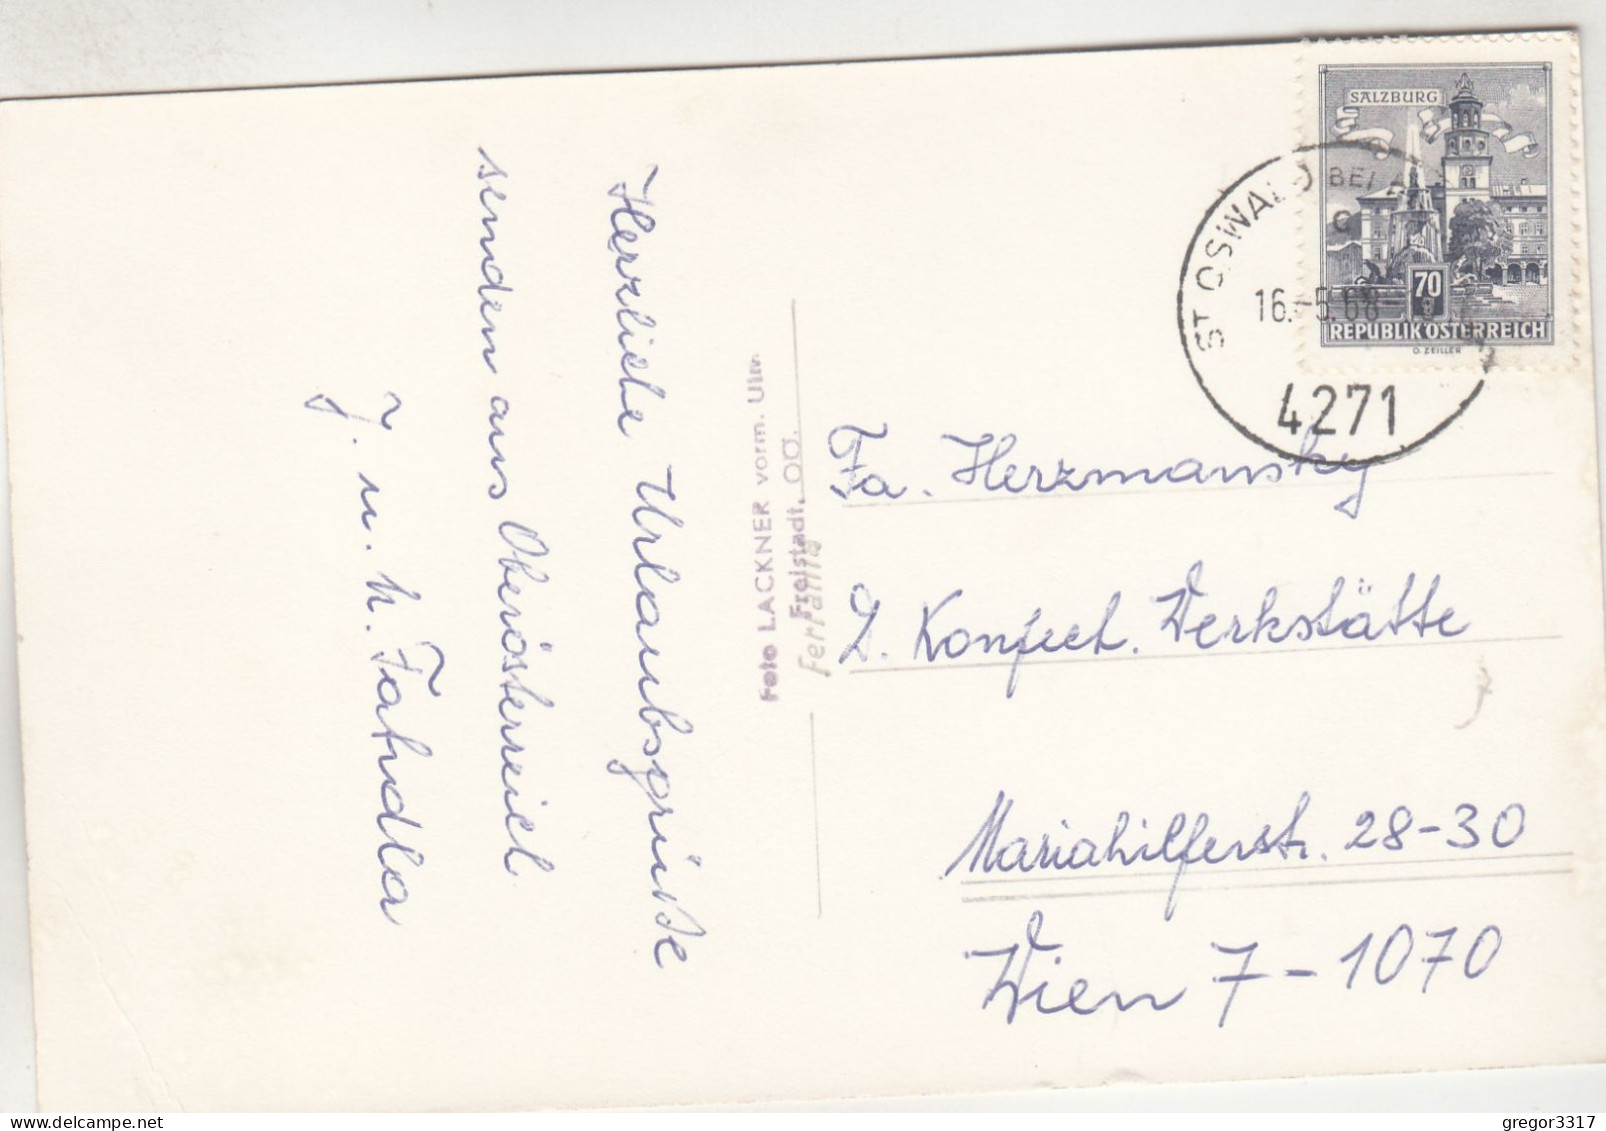 Herzliche Urlaubsgrüße
senden aus Oberösterreich
J. u. H. Fahudla
Foto LACKNER vorm. Ulm
Freistadt, OÖ.
Ferrania
SALZBURG
70
REPUBLIK ÖSTERREICH
O. ZEILLER
ST OSWALD BEI
c
16.-5.68
4271
Fa. Herzmansky
2. Konfect. Werkstätte
Mariahilferstr. 28-30
Wien 7-1070
gregor3317